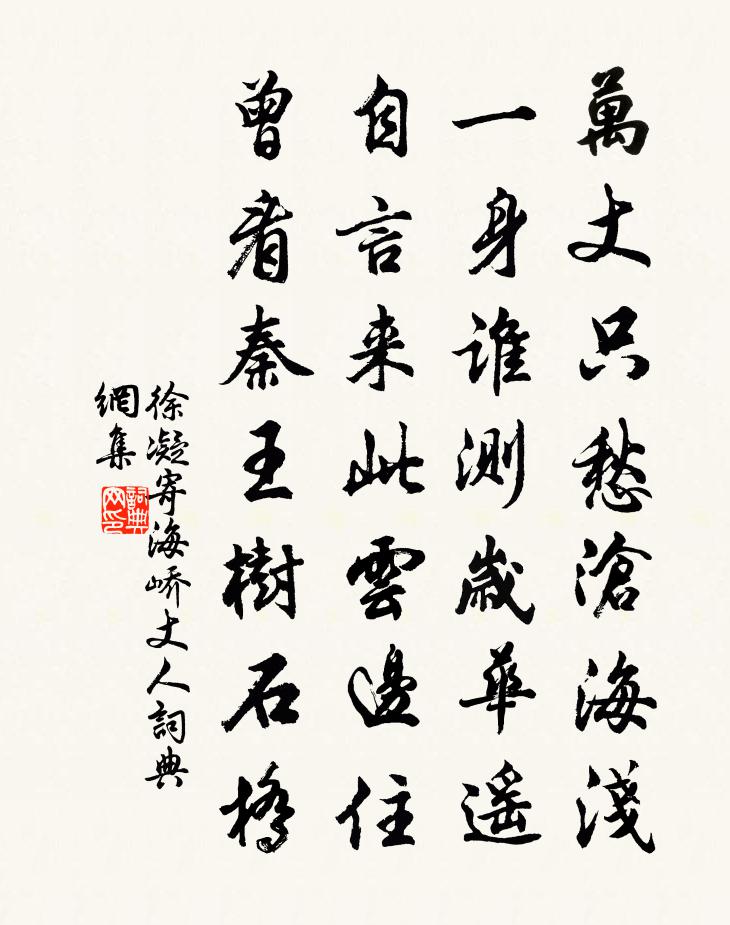 萬丈只愁滄海淺
一身誰測歲華遙
自言来此雲邊住
曾看秦王樹石橋
徐凝寄海嶠丈人詞典
網集
詞典
网印